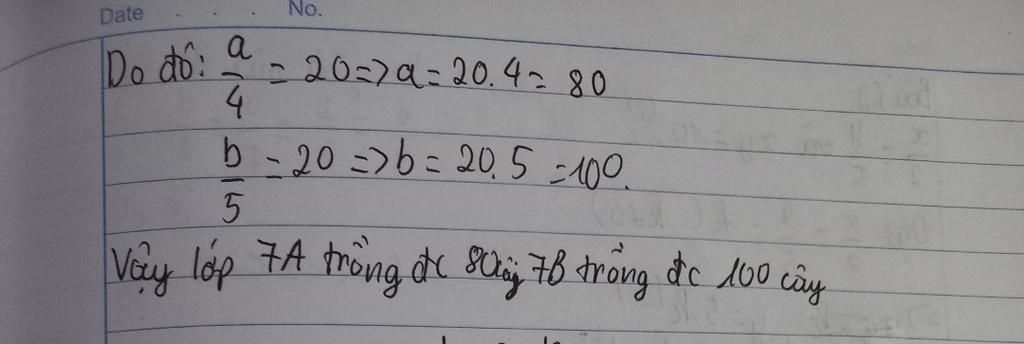 Date . . . No.
Do đó: a/4 = 20 => a = 20.4 = 80
b/5 = 20 => b = 20.5 = 100.
Vậy lớp 7A trồng đc 80 cây 7B trồng đc 100 cây